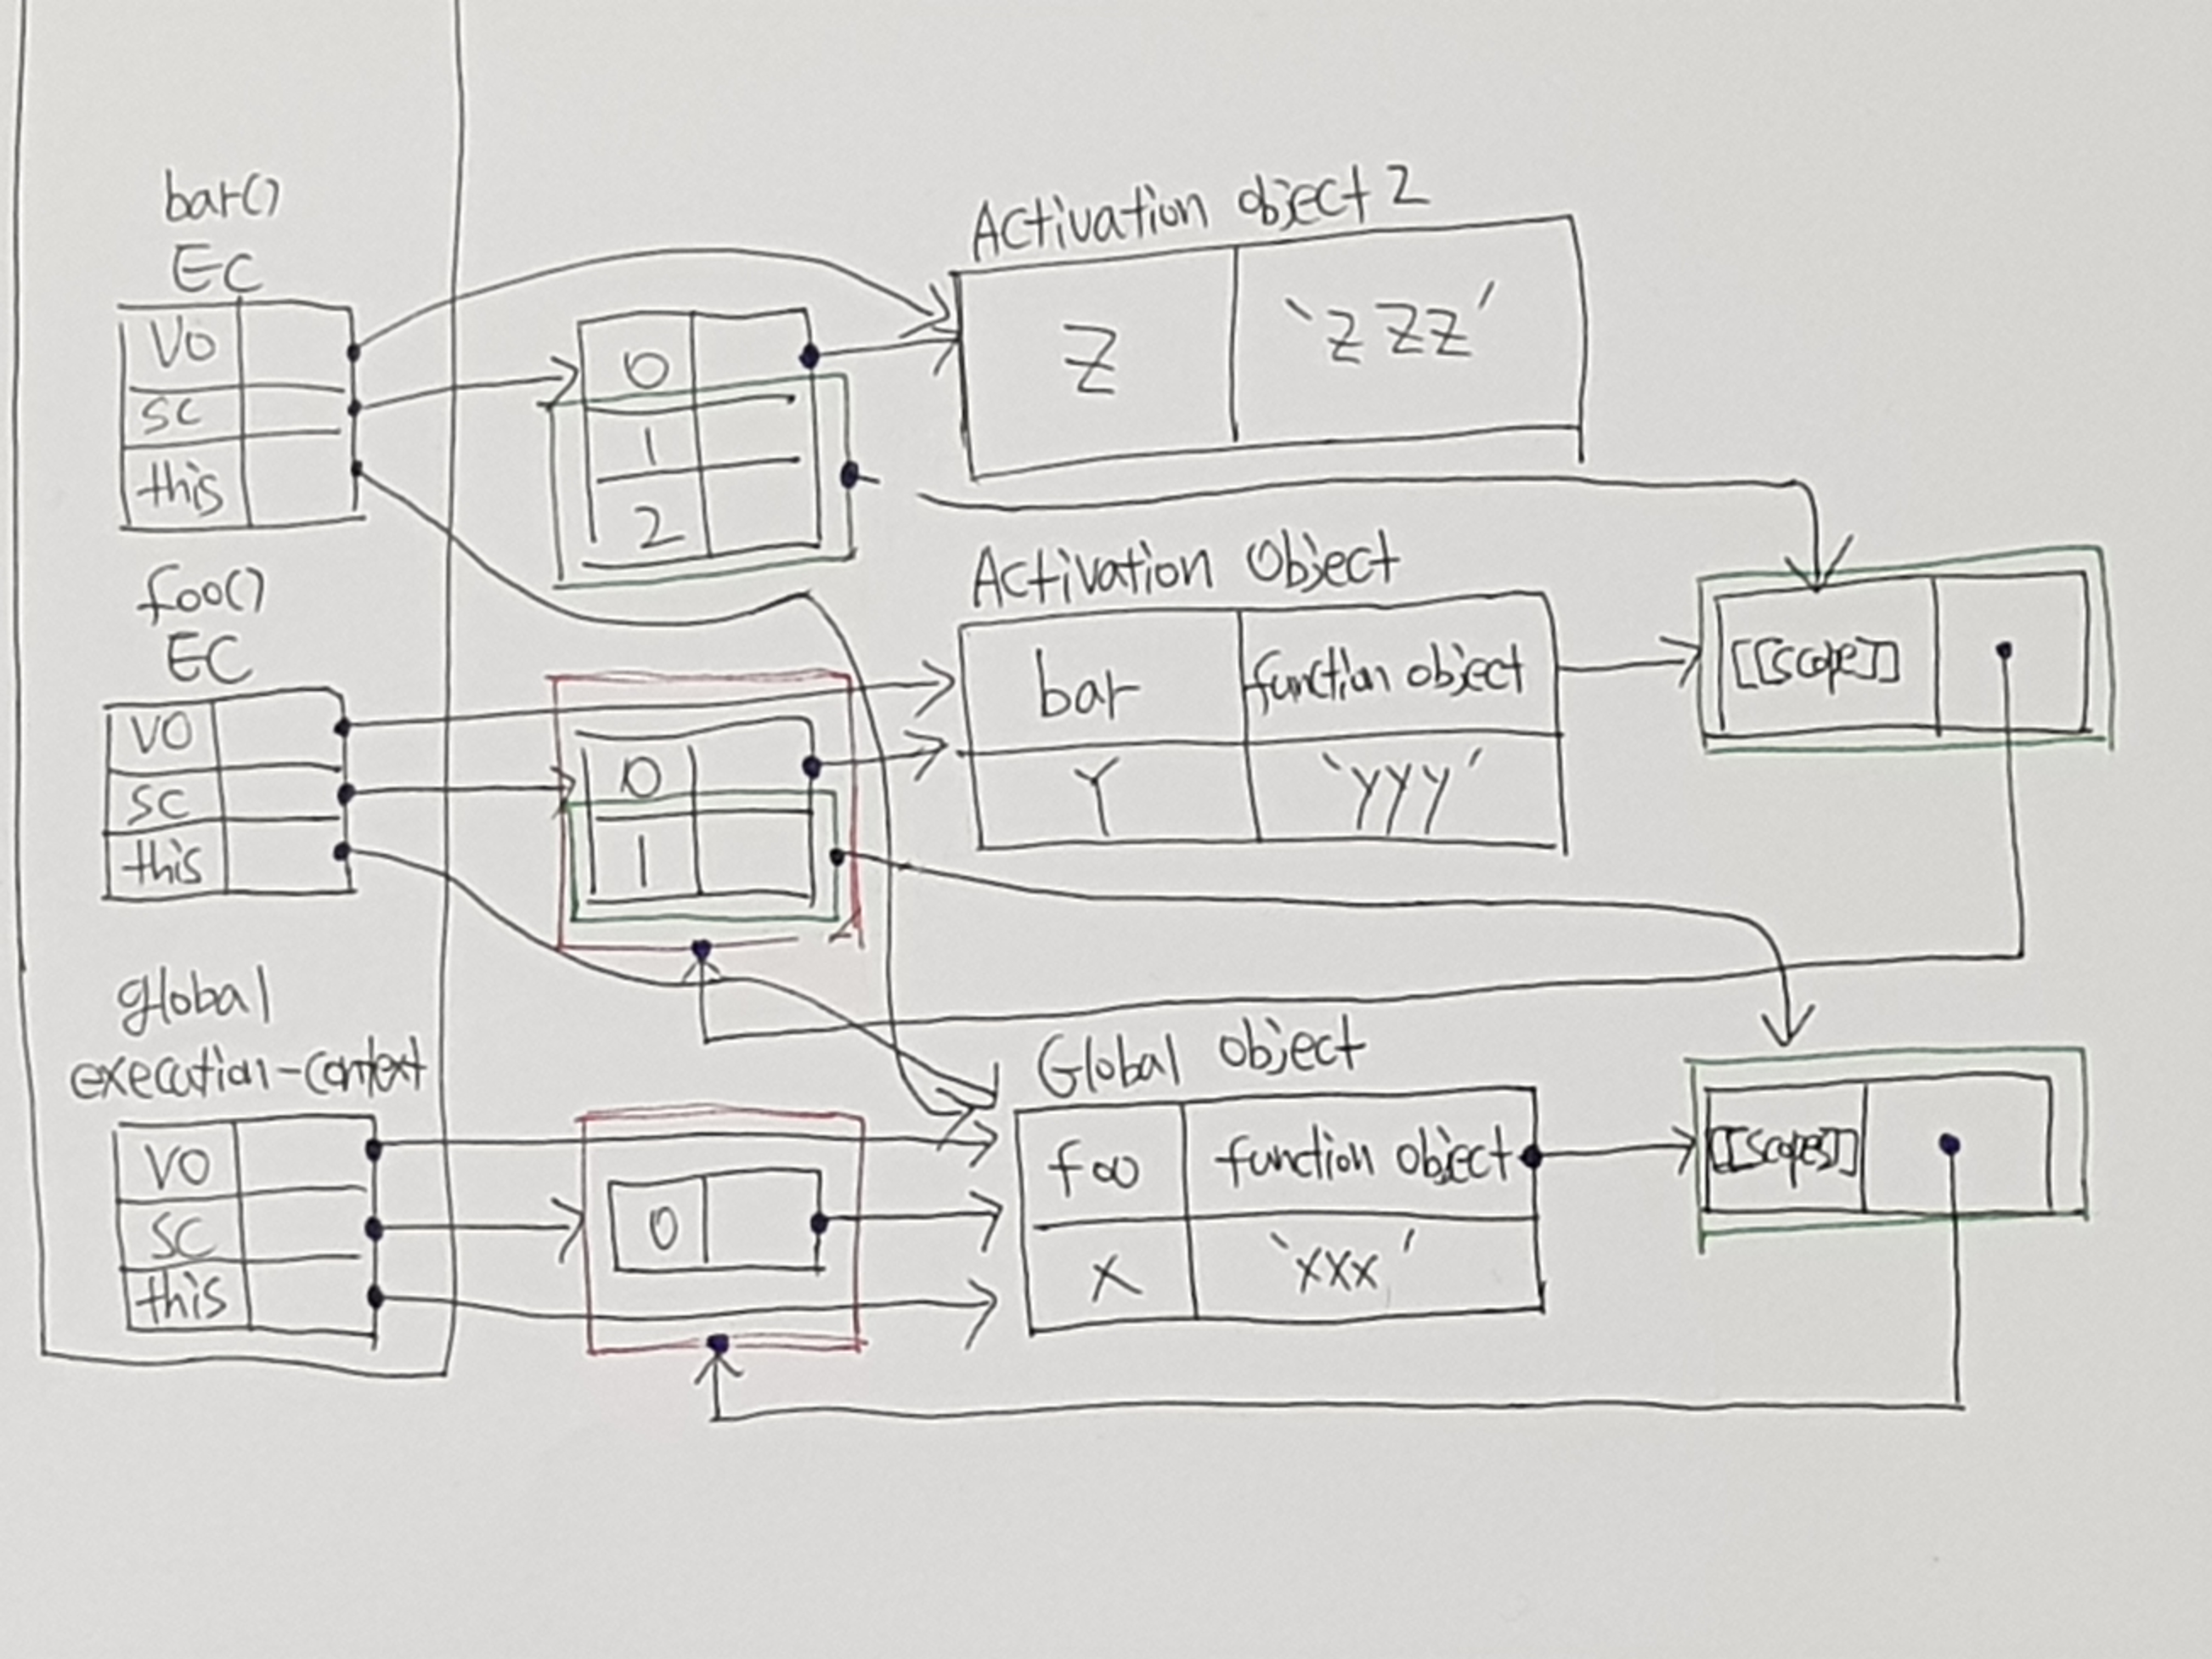 bar()
EC
VO
SC
this
0
1
2
Activation object 2
Z 'ZZZ'
foo()
EC
VO
SC
this
0
1
Activation Object
bar function object
Y 'YYY'
[[Scope]]
global
execution-context
VO
SC
this
0
Global Object
foo function object
X 'XXX'
[[Scopes]]